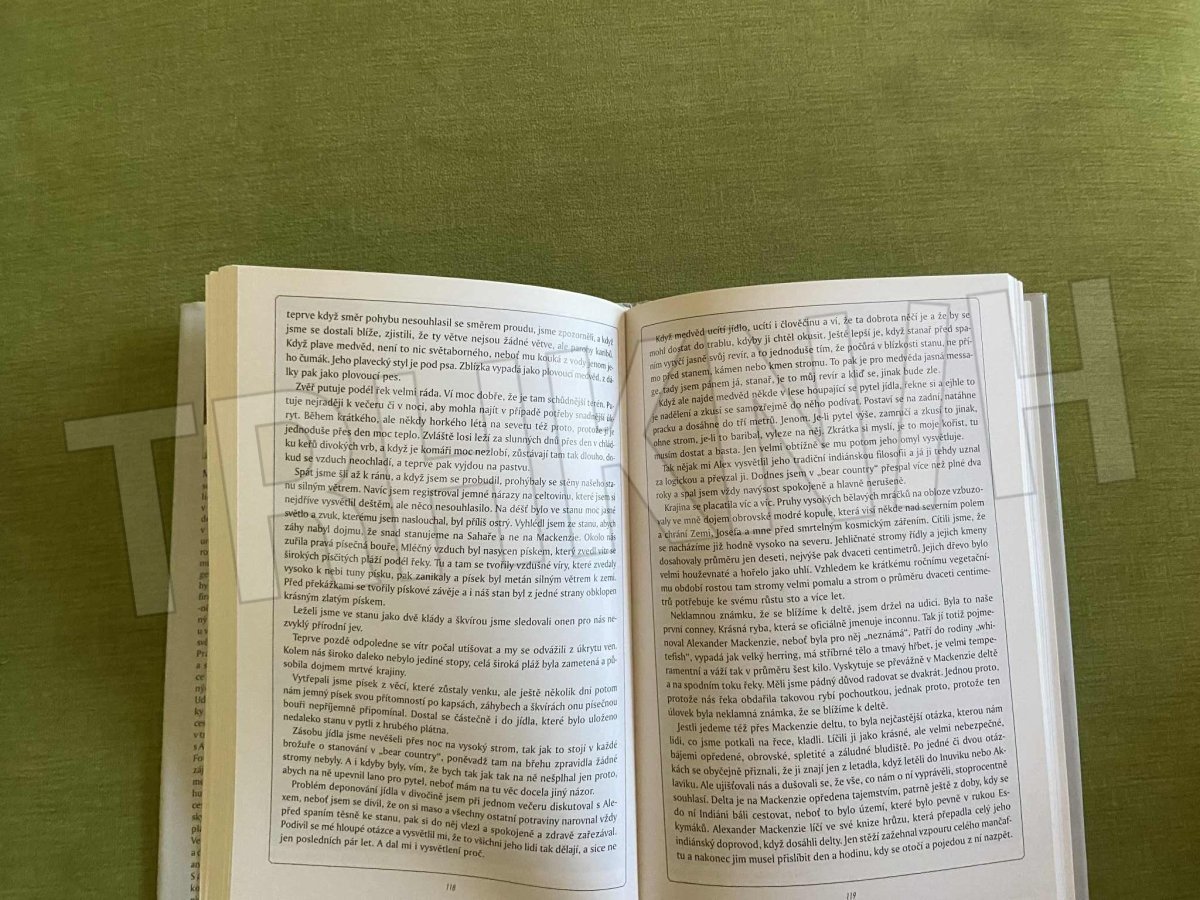 teprve když směr pohybu nesouhlasil se směrem proudu, jsme zpozorněli, a když
jsme se dostali blíže, zjistili, že ty větve nejsou žádné větve, ale parohy karibů.
Když plave medvěd, není to nic světaborného, neboť mu kouká z vody jenom je-
ho čumák. Jeho plavecký styl je pod psa. Zblízka vypadá jako plovoucí medvěd, z dá-
lky pak jako plovoucí pes.
Zvěř putuje podél řek velmi ráda. Ví moc dobře, že je tam schůdnější terén. Pu-
tuje nejraději k večeru či v noci, aby mohla najít v případě potřeby snadnější úk-
ryt. Během krátkého, ale někdy horkého léta na severu též proto, protože ji je
jednoduše přes den moc teplo. Zvláště losi leží za slunných dnů přes den v chlád-
ku keřů divokých vrb, a když je komáři moc nezlobí, zůstávají tam tak dlouho, do-
kud se vzduch neochladí, a teprve pak vyjdou na pastvu.
Spát jsme šli až k ránu, a když jsem se probudil, prohýbaly se stěny našeho sta-
nu silným větrem. Navíc jsem registroval jemné nárazy na celtovinu, které jsem si
nejdříve vysvětlil deštěm, ale něco nesouhlasilo. Na déšť bylo ve stanu moc jasné
světlo a zvuk, kterému jsem naslouchal, byl příliš ostrý. Vyhlédl jsem ze stanu, abych
záhy nabyl dojmu, že snad stanujeme na Sahaře a ne na Mackenzie. Okolo nás
zuřila pravá písečná bouře. Mléčný vzduch byl nasycen pískem, který zvedl vítr se
širokých písčitých pláží podél řeky. Tu a tam se tvořily vzdušné víry, které zvedaly
vysoko k nebi tuny písku, pak zanikaly a písek byl metán silným větrem k zemi.
Před překážkami se tvořily pískové závěje a i náš stan byl z jedné strany obklopen
krásným zlatým pískem.
Leželi jsme ve stanu jako dvě klády a škvírou jsme sledovali onen pro nás ne-
zvyklý přírodní jev.
Teprve pozdě odpoledne se vítr počal utišovat a my se odvážili z úkrytu ven.
Kolem nás široko daleko nebylo jediné stopy, celá široká pláž byla zametená a pů-
sobila dojmem mrtvé krajiny.
Vytřepali jsme písek z věcí, které zůstaly venku, ale ještě několik dní potom
nám jemný písek svou přítomností po kapsách, záhybech a škvírách onu písečnou
bouři nepříjemně připomínal. Dostal se částečně i do jídla, které bylo uloženo
nedaleko stanu v pytli z hrubého plátna.
Zásobu jídla jsme nevěšeli přes noc na vysoký strom, tak jak to stojí v každé
brožuře o stanování v „bear country“, poněvadž tam na břehu zpravidla žádné
stromy nebyly. A i kdyby byly, vím, že bych tak jak tak na ně nešplhal jen proto,
abych na ně upevnil lano pro pytel, neboť mám na tu věc docela jiný názor.
Problém deponování jídla v divočině jsem při jednom večeru diskutoval s Ale-
xem, neboť jsem se divil, že on si maso a všechny ostatní potraviny narovnal vždy
před spaním těsně ke stanu, pak si do něj vlezl a spokojeně a zdravě zařezával.
Podivil se mé hloupé otázce a vysvětlil mi, že to všichni jeho lidi tak dělají, a sice ne
jen posledních pár let. A dal mi i vysvětlení proč.
118
Když medvěd ucítí jídlo, ucítí i člověčinu a ví, že ta dobrota něčí je a že by se
mohl dostat do trablu, kdyby ji chtěl okusit. Ještě lepší je, když stanař před spa-
ním vytyčí jasně svůj revír, a to jednoduše tím, že počůrá v blízkosti stanu, ne pří-
mo před stanem, kámen nebo kmen stromu. To pak je pro medvěda jasná messa-
ge, tady jsem pánem já, stanař, je to můj revír a kliď se, jinak bude zle.
Když ale najde medvěd někde v lese houpající se pytel jídla, řekne si a ejhle to
je nadělení a zkusí se samozřejmě do něho podívat. Postaví se na zadní, natáhne
pracku a dosáhne do tří metrů. Jenom. Je-li pytel výše, zamručí a zkusí to jinak,
ohne strom, je-li to baribal, vyleze na něj. Zkrátka si myslí, je to moje kořist, tu
musím dostat a basta. Jen velmi obtížně se mu potom jeho omyl vysvětluje.
Tak nějak mi Alex vysvětlil jeho tradiční indiánskou filosofii a já ji tehdy uznal
za logickou a převzal ji. Dodnes jsem v „bear country“ přespal více než plné dva
roky a spal jsem vždy navýsost spokojeně a hlavně nerušeně.
Krajina se placatila víc a víc. Pruhy vysokých bělavých mráčků na obloze vzbuzo-
valy ve mně dojem obrovské modré kopule, která visí někde nad severním polem
a chrání Zemi, Josefa a mne před smrtelným kosmickým zářením. Cítili jsme, že
se nacházíme již hodně vysoko na severu. Jehličnaté stromy řídly a jejich kmeny
dosahovaly průměru jen deseti, nejvýše pak dvaceti centimetrů. Jejich dřevo bylo
velmi houževnaté a hořelo jako uhlí. Vzhledem ke krátkému ročnímu vegetační-
mu období rostou tam stromy velmi pomalu a strom o průměru dvaceti centime-
trů potřebuje ke svému růstu sto a více let.
Neklamnou známku, že se blížíme k deltě, jsem držel na udici. Byla to naše
první conney. Krásná ryba, která se oficiálně jmenuje inconnu. Tak jí totiž pojme-
noval Alexander Mackenzie, neboť byla pro něj „neznámá“. Patří do rodiny „whi-
tefish“, vypadá jak velký herring, má stříbrné tělo a tmavý hřbet, je velmi tempe-
ramentní a váží tak v průměru šest kilo. Vyskytuje se převážně v Mackenzie deltě
a na spodním toku řeky. Měli jsme pádný důvod radovat se dvakrát. Jednou proto,
protože nás řeka obdařila takovou rybí pochoutkou, jednak proto, protože ten
úlovek byla neklamná známka, že se blížíme k deltě.
Jestli jedeme též přes Mackenzie deltu, to byla nejčastější otázka, kterou nám
lidi, co jsme potkali na řece, kladli. Líčili ji jako krásné, ale velmi nebezpečné,
bájemi opředené, obrovské, spletité a záludné bludiště. Po jedné či dvou otáz-
kách se obyčejně přiznali, že ji znají jen z letadla, když letěli do Inuviku nebo Ak-
laviku. Ale ujišťovali nás a dušovali se, že vše, co nám o ní vyprávěli, stoprocentně
souhlasí. Delta je na Mackenzie opředena tajemstvím, patrně ještě z doby, kdy se
do ní Indiáni báli cestovat, neboť to bylo území, které bylo pevně v rukou Es-
kymáků. Alexander Mackenzie líčí ve své knize hrůzu, která přepadla celý jeho
indiánský doprovod, když dosáhli delty. Jen stěží zažehnal vzpouru celého mančaf-
tu a nakonec jim musel přislíbit den a hodinu, kdy se otočí a pojedou z ní nazpět.
119